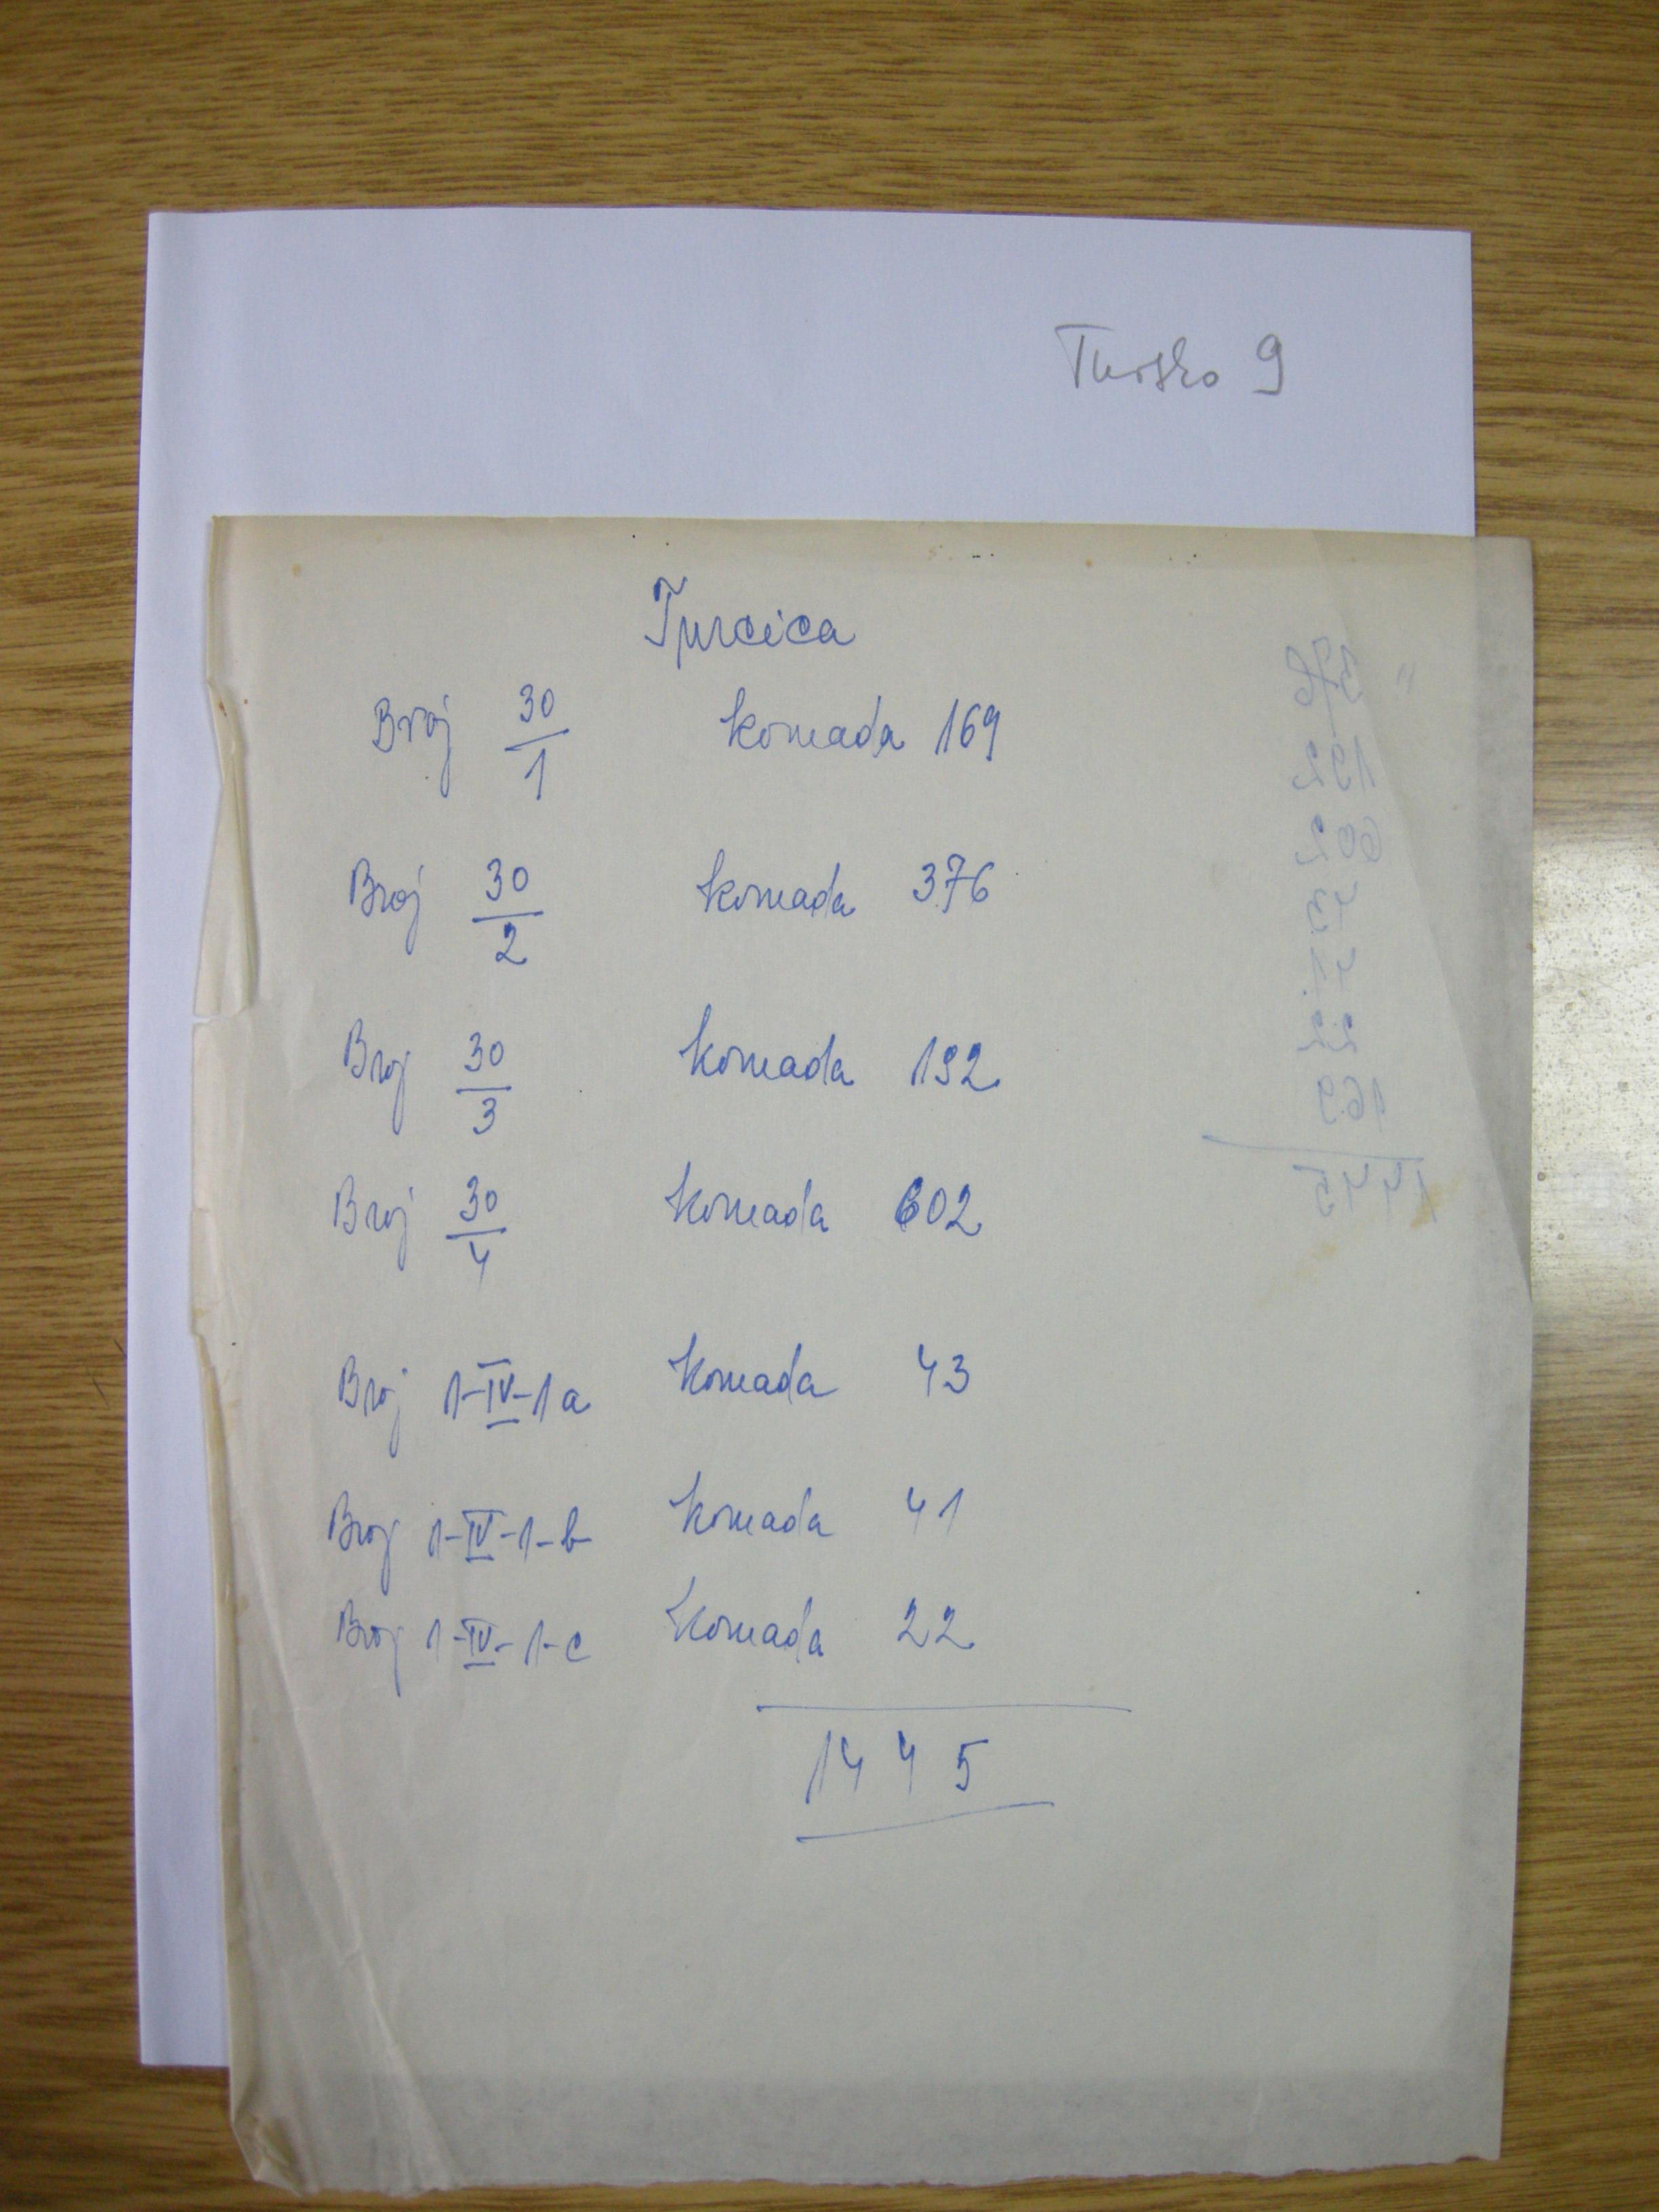 Tursko 9
Turcica
Broj 30/1 komada 169
Broj 30/2 komada 376
Broj 30/3 komada 192
Broj 30/4 komada 602
Broj 1-IV-1a komada 43
Broj 1-IV-1-b komada 41
Broj 1-IV-1-c komada 22
1445
376
192
602
43
41
22
169
1445